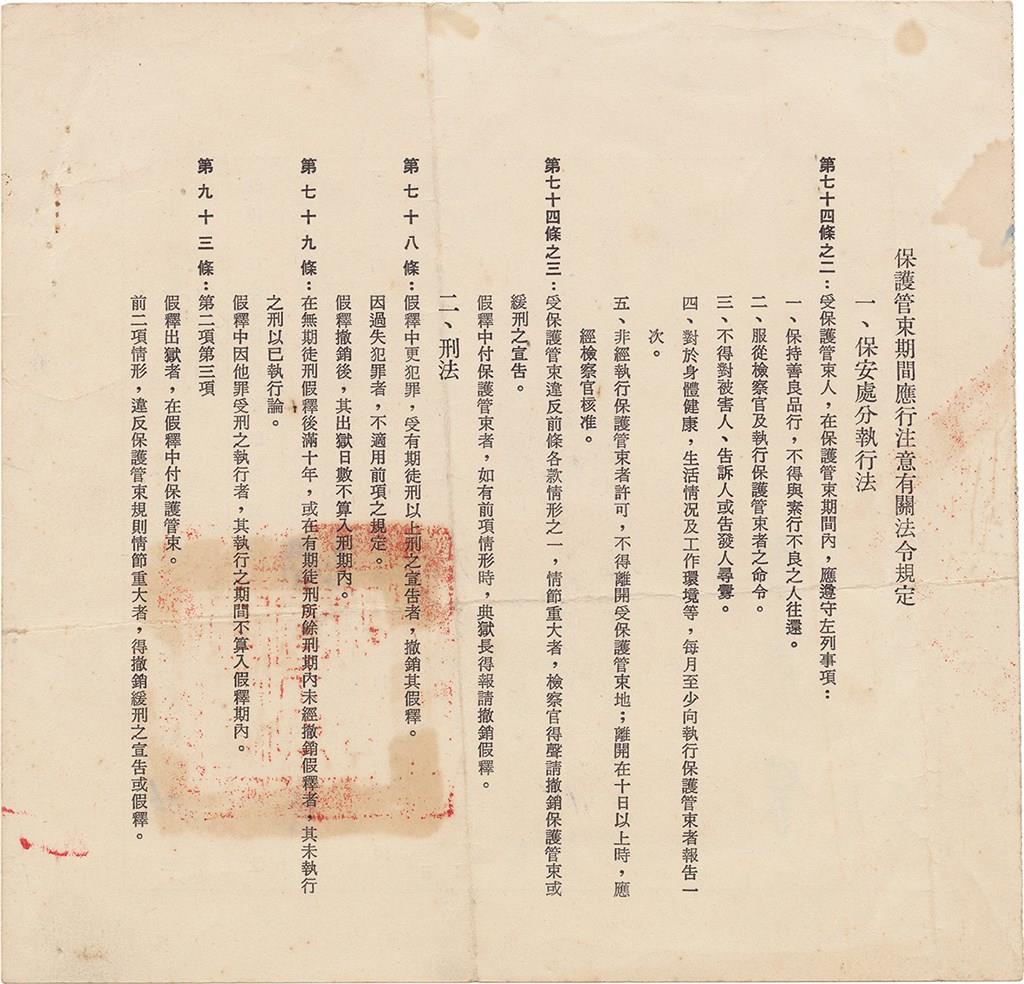 保護管束期間應行注意有關法令規定
一、保安處分執行法
第七十四條之二：受保護管束人，在保護管束期間內，應遵守左列事項：
一、保持善良品行，不得與素行不良之人往還。
二、服從檢察官及執行保護管束者之命令。
三、不得對被害人、告訴人或告發人尋釁。
四、對於身體健康，生活情況及工作環境等，每月至少向執行保護管束者報告一
次。
五、非經執行保護管束者許可，不得離開受保護管束地；離開在十日以上時，應
經檢察官核准。
第七十四條之三：受保護管束違反前條各款情形之一，情節重大者，檢察官得聲請撤銷保護管束或
緩刑之宣告。
假釋中付保護管束者，如有前項情形時，典獄長得報請撤銷假釋。
二、刑法
第七十八條：假釋中更犯罪，受有期徒刑以上刑之宣告者，撤銷其假釋。
因過失犯罪者，不適用前項之規定。
假釋撤銷後，其出獄日數不算入刑期內。
第七十九條：在無期徒刑假釋後滿十年，或在有期徒刑所餘刑期內未經撤銷假釋者，其未執行
之刑以已執行論。
假釋中因他罪受刑之執行者，其執行之期間不算入假釋期內。
第九十三條：第二項第三項
假釋出獄者，在假釋中付保護管束。
前二項情形，違反保護管束規則情節重大者，得撤銷緩刑之宣告或假釋。